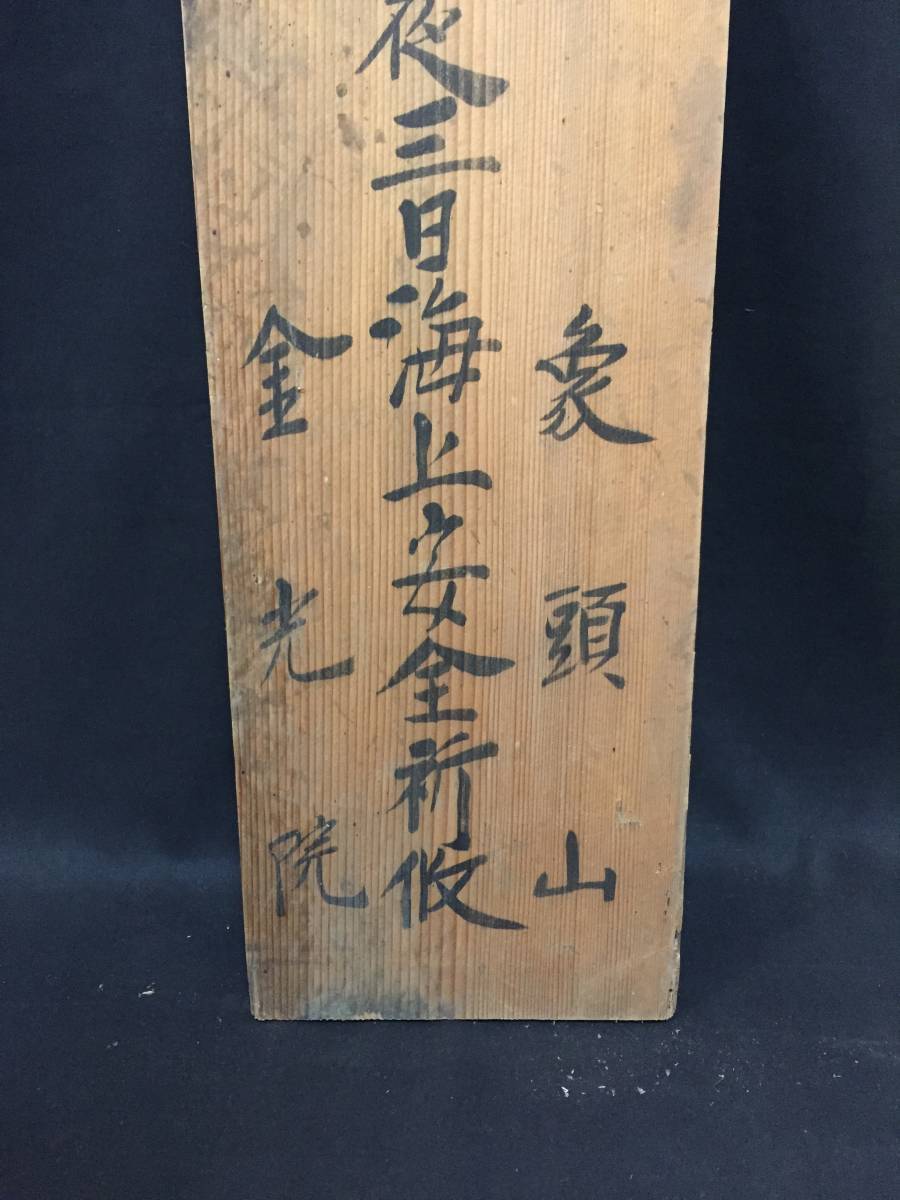 象頭山
夜三日海上安全祈攸
金光院